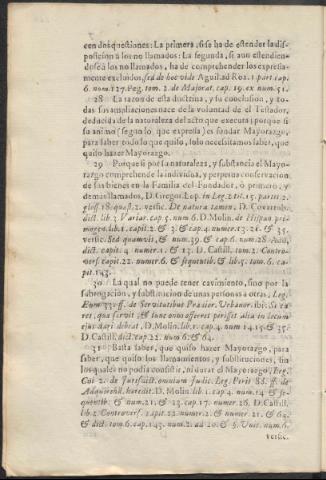 cen dos questiones: La primera, si se ha de estender la dis-
posicion à los no llamados: La segunda, si aun estendien-
dose à los no llamados, ha de comprehender los expressa-
mente excluidos, sed de hoc vide Aguil. ad Roa. 1. part. cap.
6. num. 127. Peg. tom. 2. de Majorat. cap. 19. ex num. 51.
28 La razon de esta doctrina, y su conclusion, y to-
das sus ampliaciones nace de la voluntad de el Testador,
deducida de la naturaleza del acto que executa; porque si
su animo (segun lo que expressa) es fundar Mayorazgo,
para saber todo lo que quiso, solo necessitamos saber, que
quiso hazer Mayorazgo.
29 Porque si por la naturaleza, y substancia el Mayo-
razgo comprehende la individua, y perpetua conservacion
de sus bienes en la Familia del Fundador, ò primero, y
demas llamados, D. Gregor. Lop. in Leg. 2. tit. 15. partit. 2.
glos. 18. quæst. 2. versic. De natura tamen, D. Covarrub.
dict. lib. 3. Variar. cap. 5. num. 6. D. Molin. de Hispan. pri-
mogen. lib. 1. capit. 2. & 3. & cap. 4. num. 13. 21. & 35.
versic. Sed quamvis, & num. 39. & cap. 6. num. 28. Add.
dict. capit. 4. numer. 1. & 13. D. Castill. tom. 2. Contro-
vers. capit. 22. numer. 6. & sequentib. & lib. 5. tom. 6. ca-
pit. 143.
30 La qual no puede tener cavimiento, sino por la
subrogacion, y substitucion de unas personas a otras, Leg.
Eum 33. ff. de Servitutibus Prædior. Urbanor. ibi: Si ca-
ret, qua servit, & tunc onus afferret, perisset alia in locum
ejus dari debeat, D. Molin. lib. 1. cap. 4. num. 14. 15. & 35.
D. Castill. dict. cap. 22. num. 61. & 64.
31 Basta saber, que quiso hazer Mayorazgo, para
saber, que quiso los llamamientos, y substituciones, sin
los quales no podia constituir, ni durar el Mayorazgo, Leg.
Cui 2. de Jurisdict. omnium Judic. Leg. Peris 88. ff. de
Adquirend. haredit. D. Molin. lib. 1. cap. 4. num. 14. & se-
quentib. & num. 21. & 23. cap. 17. numer. 26. D. Castill.
lib. 2. Controvers. capit. 22. numer. 2. & numer. 21. & 62.
& dict. tom. 6. cap. 143. num. 2. ad 20. & §. Unic. num. 6.
versic.